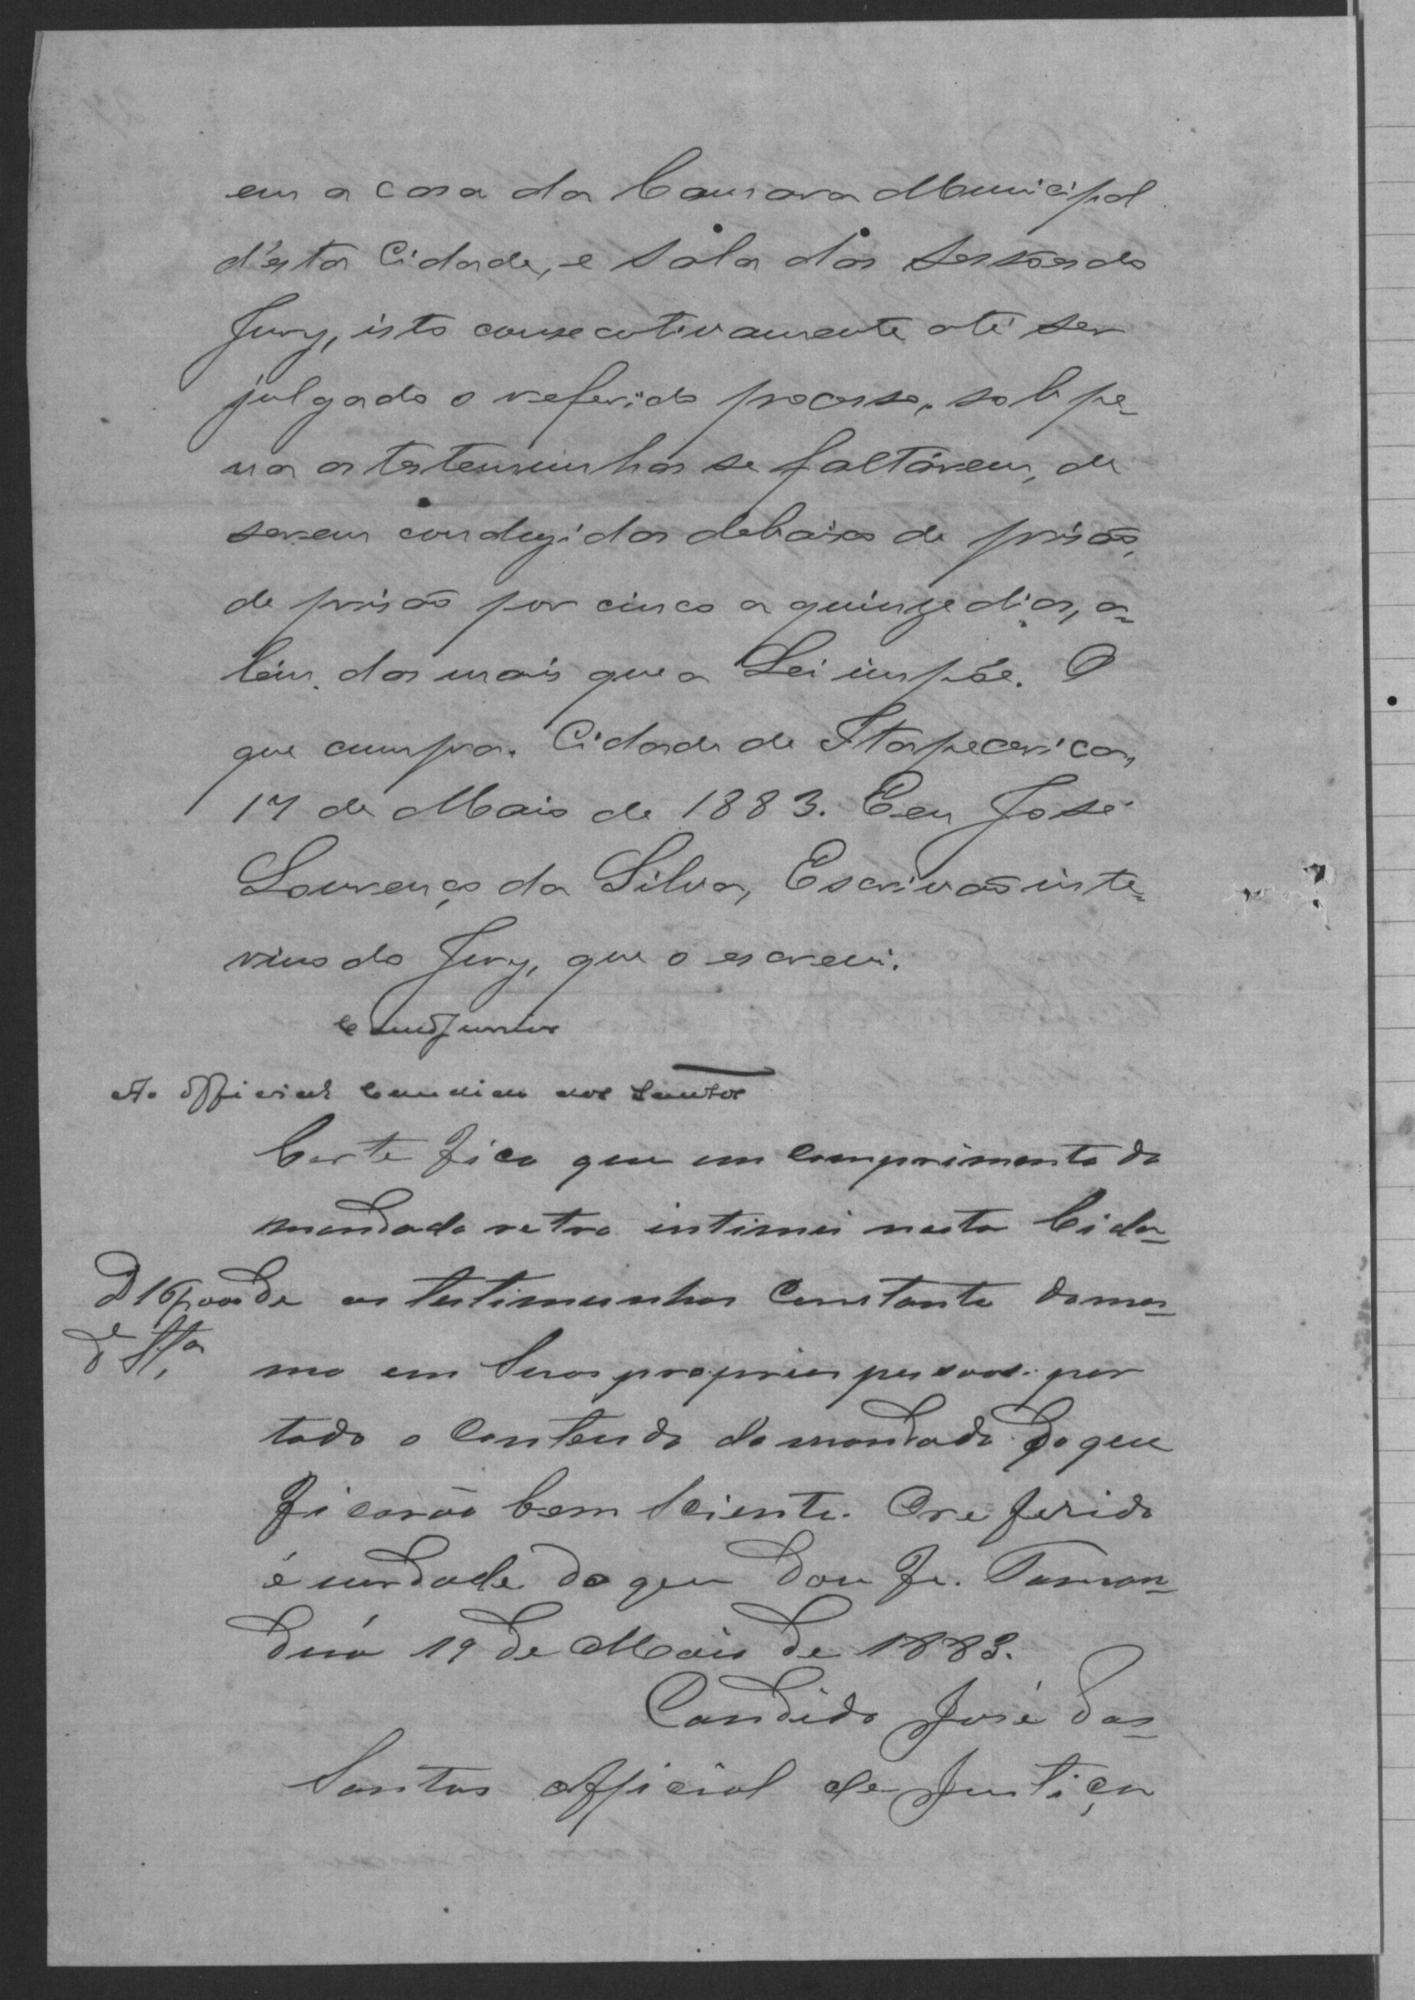 em a casa da Camara Municipal
d'esta Cidade, e sala das sessões do
Jury, isto consecutivamente até ser
julgado o referido processo, sob pe-
na as testemunhas se faltárem, de
serem condusidas debaixo de prisão,
de prisão por cinco a quinze dias, a-
lém das mais que a Lei impõe. O
que cumpra. Cidade de Itapecerica,
17 de Maio de 1883. Eeu José
Lourenço da Silva, Escrivão inte-
rino do Jury, que o escrevi.
Ao Official Candido dos Santos
Certefico que em comprimento do
mandado retro intimei nesta Cida-
de as testimunhas Constante do mes-
mo em suas proprias pessoas por
todo o Conteudo do mandado do que
ficarão bem Sciente. O referido
é verdade do que dou fe. Taman-
duá 19 de Maio de 1883.
Candido José dos
Santos Official de Justiça